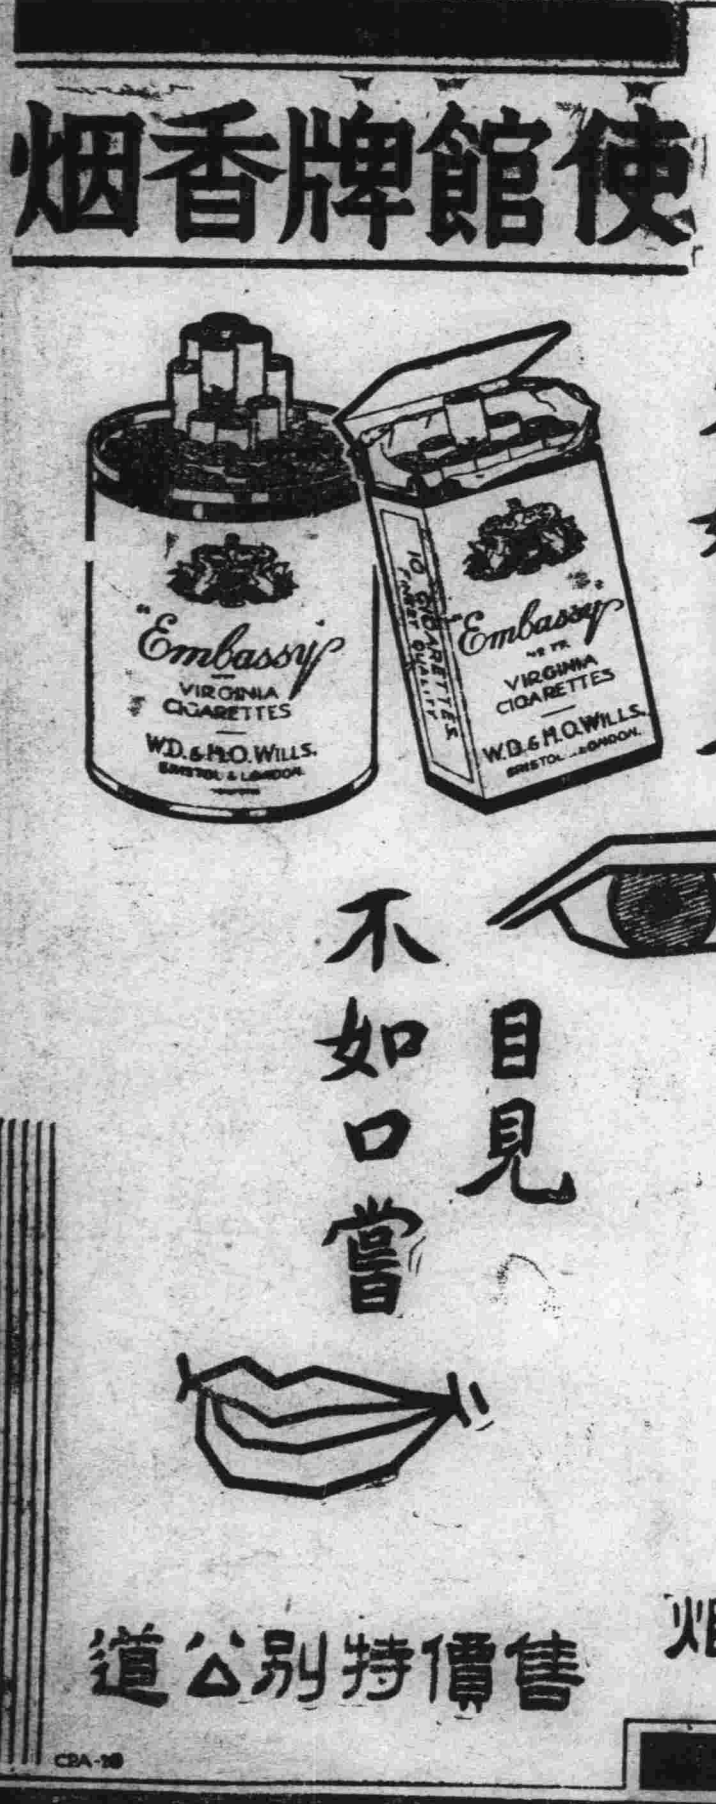 使館牌香烟
"Embassy"
VIRGINIA
CIGARETTES
W.D. & H.O. WILLS.
BRISTOL & LONDON.
10 CIGARETTES
FINEST QUALITY
"Embassy"
VIRGINIA
CIGARETTES
W.D. & H.O. WILLS.
BRISTOL & LONDON.
目見
不如口嘗
售價特別公道